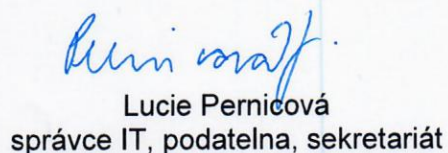 Lucie Pernicová
správce IT, podatelna, sekretariát